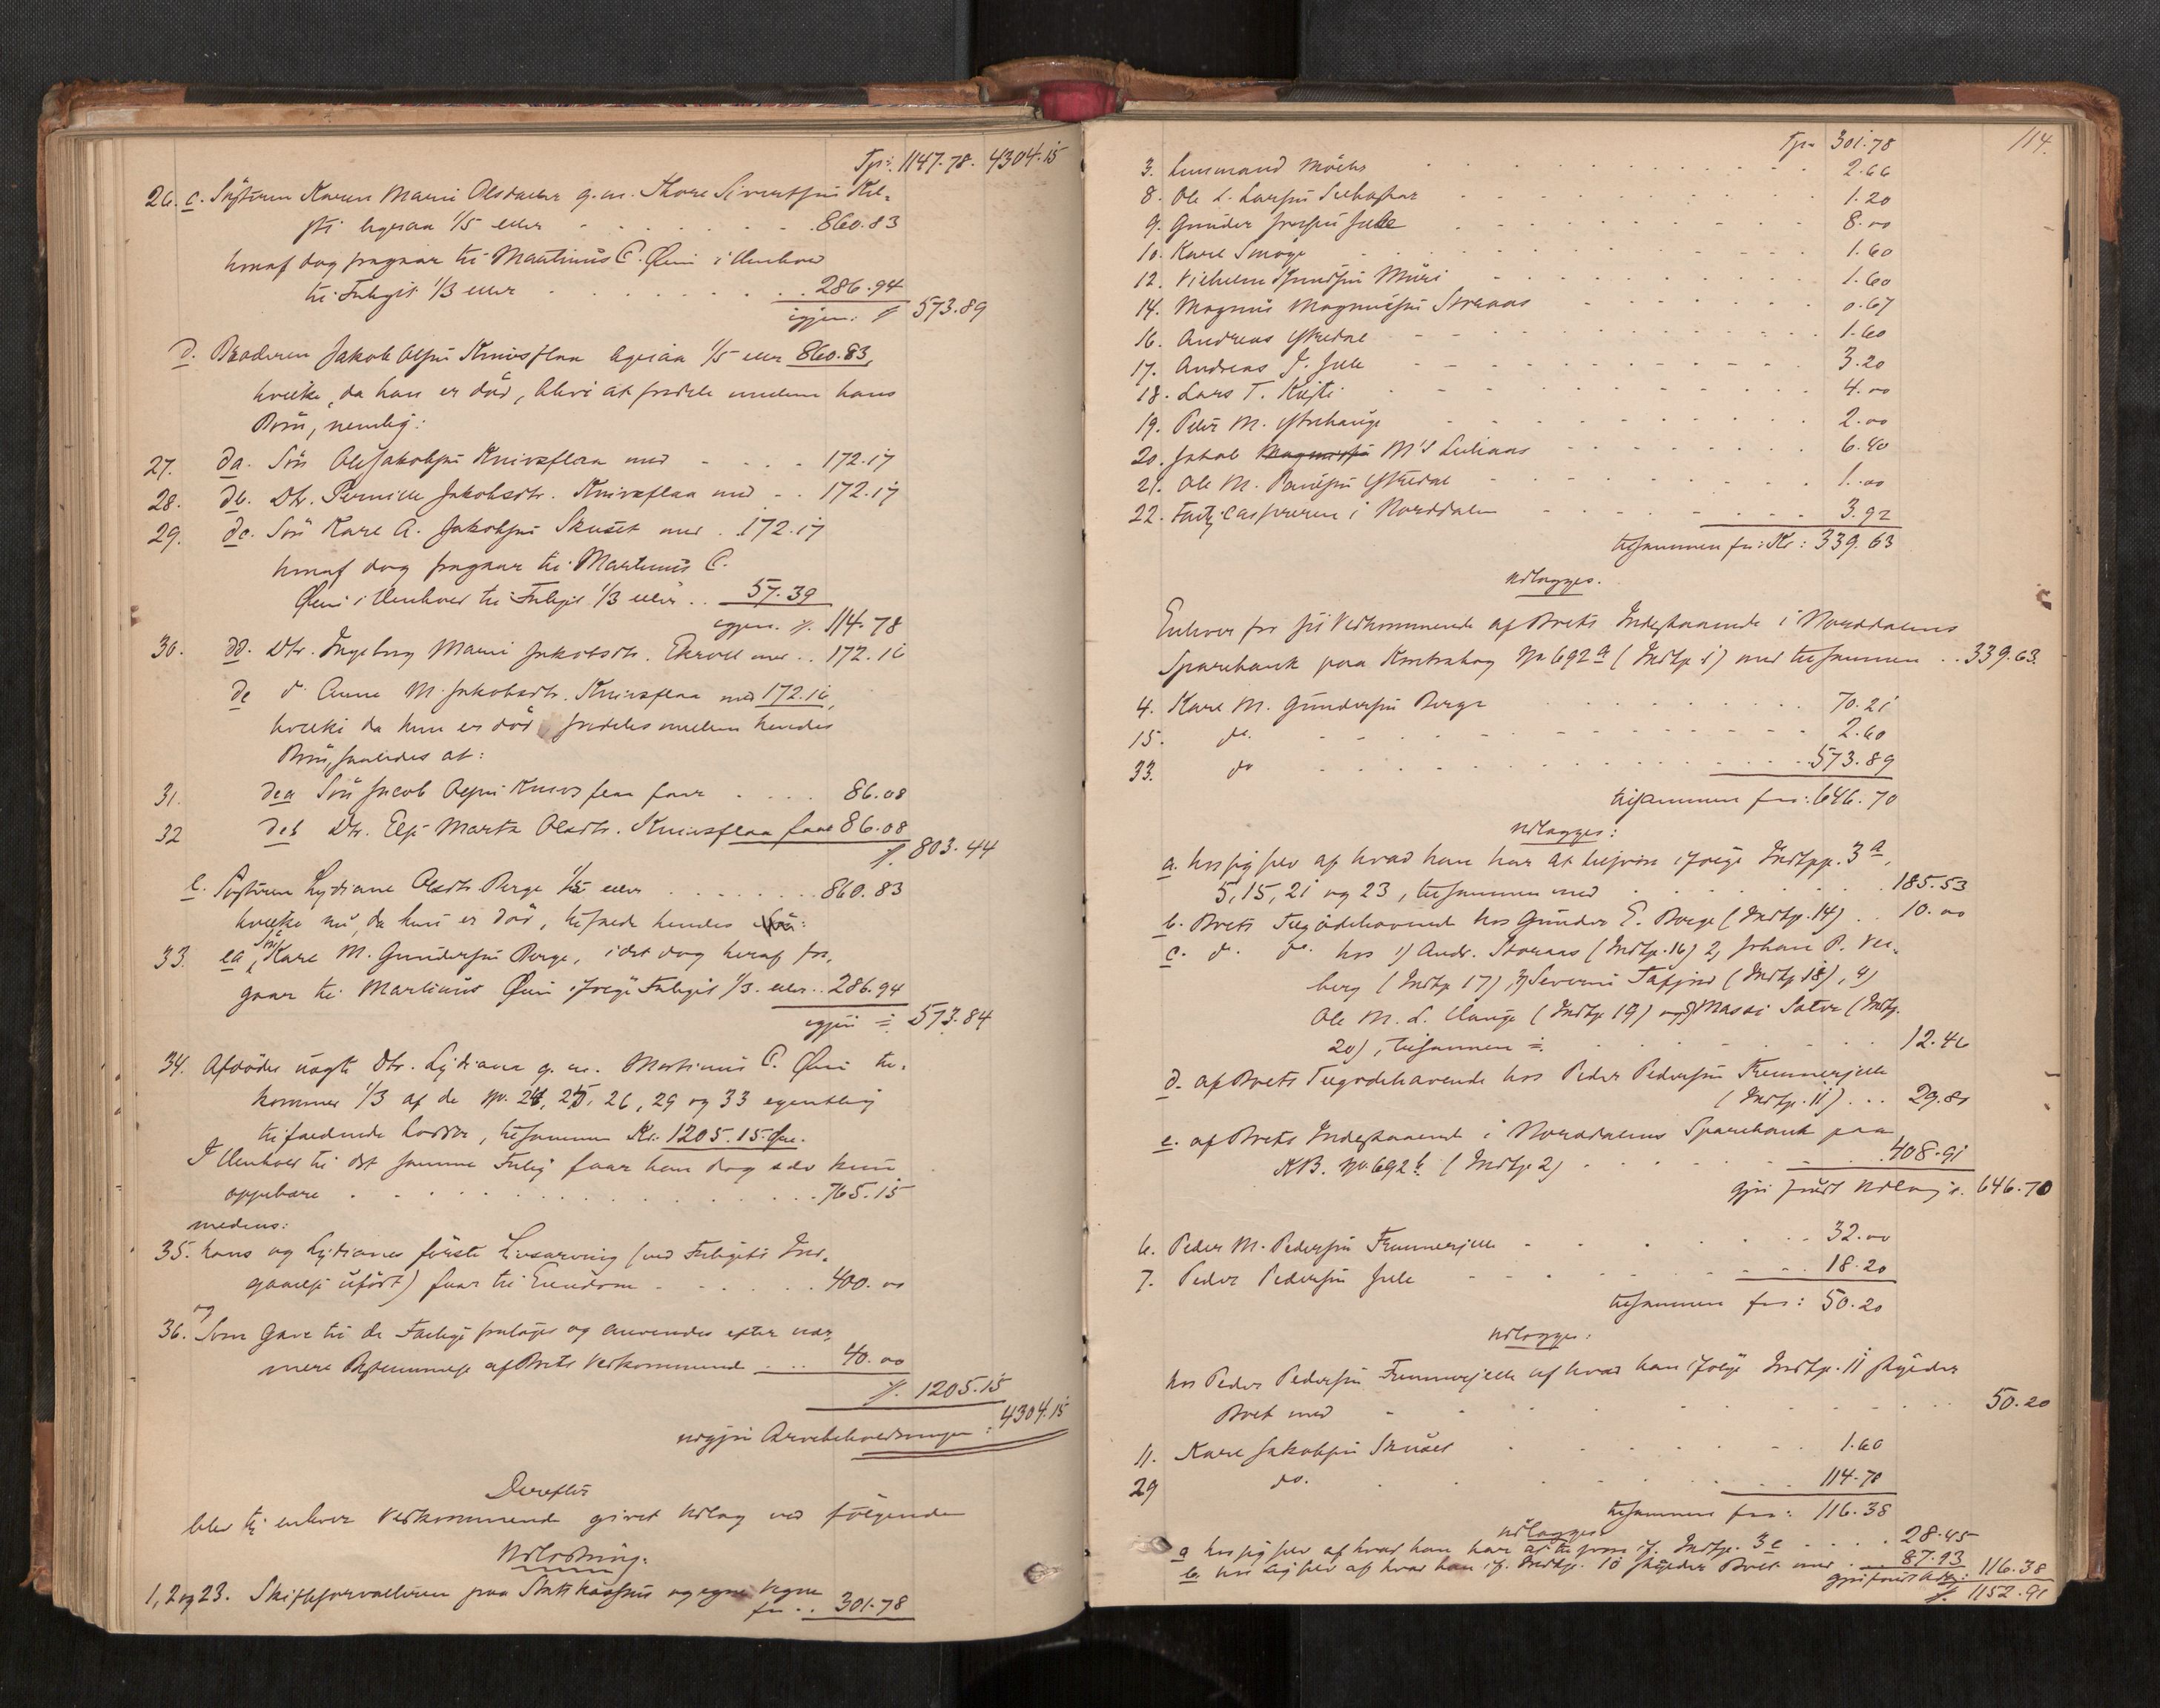 Tp: 1147.78. 4304.15
26. c. Søsteren Karen Marie Olsdatter g. m. Thore Sivertsen Kil-
sti ligesaa 1/5 eller 860.83
hvoraf dog fragaar til Martinus C. Øien i Henhold
til Forligt 1/3 eller 286.94
igjen: % 573.89
d. Broderen Jakob Olsen Knivsflaa ligesaa 1/5 eller 860.83,
hvilke, da han er død, blive at fordele mellem hans
Børn, nemlig:
27. da. Søn Ole Jakobsen Knivsflaa med 172.17
28. db. Dtr. Pernille Jakobsdtr. Knivsflaa med 172.17
29. dc. Søn Karl A. Jakobsen med 172.17
hvoraf dog fragaar til Martinus C.
Øien i Henhold til Forligt 1/3 eller 57.39
igjen. %. 114.78
30. dd. Dtr. Ingeborg Marie Jakobsdtr. Ekroll med 172.16
de d. Anne M. Jakobsdtr. Knivsflaa med 172.16,
hvilke da hun er død fordeles mellem hendes
Børn, saaledes at:
31. dea Søn Jacob Olsen Knivsflaa faar 86.08
32 deb Dtr. Else Marta Olsdtr. Knivsflaa faar 86.08
%. 803.44
e. Søsteren Lydiane Olsdtr. Berge 1/5 eller 860.83
hvilke nu, da hun er død, tilfalde hendes
33. ea Søn Karl M. Gundersen Berge, idet dog heraf fra-
gaar til Martinus Øien ifølge Forligt 1/3 eller 286.94
igjen = 573.84
34. Afdødes Dtr. Lydiana g. m. Martinus C. Øien til-
kommer 1/3 af de No. 24, 25, 26, 29 og 33 egentlig
tilfaldende Lodder, tilsammen Kr. 1205.15 Øre.
I Henhold til det samme Forlig faar han dog selv kun
oppebære 765.15
medens:
35. hans og Lydianes første Livsarving (ved Forligets Ind-
gaaelse ) faar til Eiendom 400.00
og
36. Som Gave til de Fattige fratages og anvendes efter nær-
mere Bestemmelse af Boets Vedkommende 40.00
%. 1205.15
udgjør Arvebeholdningen: 4304.15
Derefter
blev til enhver Vedkommende givet Udlæg ved følgende
Udlodning:
1, 2 og 23. Skifteforvalteren paa Statskassens og egne Vegne
for 301.78
114.
Tp. 301.78
3. Lensmand 2.66
8. Ole L. Larsen 1.20
9. Gunder 8.00
10. Karl 1.60
12. Vilhelm 1.60
14. Magnus Magnussen Storaas 0.67
16. Andreas Ytredal 1.60
17. Andreas J. 3.20
18. Lars T. 4.00
19. Peter M. 2.00
20. Jakob Magnussen M's 6.40
21. Ole M. Ytredal 1.00
22. Fattigcassereren i Norddalen 3.92
tilsammen for: Kr: 339.63
Udlægges.
Enhver for sit Vedkommende af Boets Indestaaende i Norddalens
Sparebank paa Kontrabog No 692a (Indtp 1) med tilsammen 339.63.
4. Karl M. Gundersen Berge 70.21
15. do. 2.60
33. do 573.89
tilsammen for: 646.70
Udlægges:
a. hos sig selv af hvad han har at tilsvare ifølge Indtpp. 3a,
5, 15, 21 og 23, tilsammen med 185.53
b. Boets Tilgodehavende hos Gunder E. Berge (Indtp. 14) 10.00
c. d. do. hos 1) Andr. Storaas (Indtp. 16) 2, Johan P. Vel-
berg (Indtp 17), 3) Severin Tafjord (Indtp 18), 4)
Ole M. L. Hauge (Indtp 19) og 5) Massi (Indtp.
20), tilsammen = 12.46
d. af Boets Tilgodehavende hos Peder Pedersen
(Indtp. 11) 29.80
e. af Boets Indestaaende i Norddalens Sparebank paa
KB. No. 692b (Indtp 2) 408.91
gjør fuldt Udlæg %. 646.70
6. Peder M. Pedersen 32.00
7. Peder Pedersen 18.20
tilsammen for: 50.20
Udlægges:
hos Peder Pedersen af hvad han ifølge Indtp. 11 skylder
Boet med 50.20
11. Karl Jakobsen 1.60
29 do. 114.78
tilsammen for: 116.38
Udlægges
a hos sig selv af hvad han har at tilsvare if. Indtp. 3c 28.45
b hos sig selv af hvad han if. Indtp. 10 skylder Boet med 87.93
gjør fuldt Udlæg: 116.38
%. 1152.91